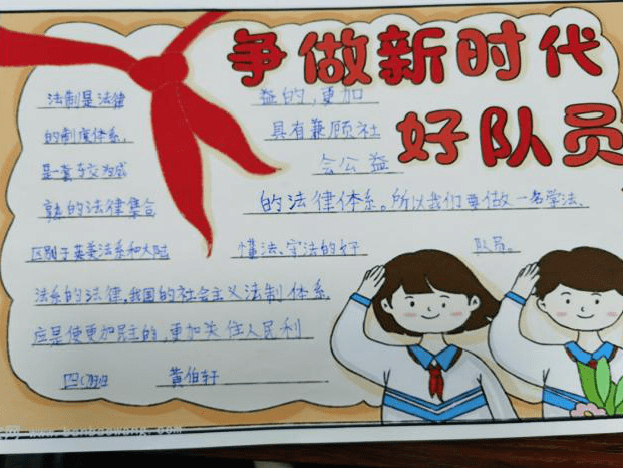 争做新时代
好队员
法制是法律
的制度体系,
是一套较为成
熟的法律集合
区别于英美法系和大陆
法系的法律,我国的社会主义法制体系,
应是使更加民主的,更加关住人民利
益的,更加
具有兼顾社
会公益
的法律体系。所以我们要做一名学法、
懂法、守法的好
队员。
班
黄伯轩